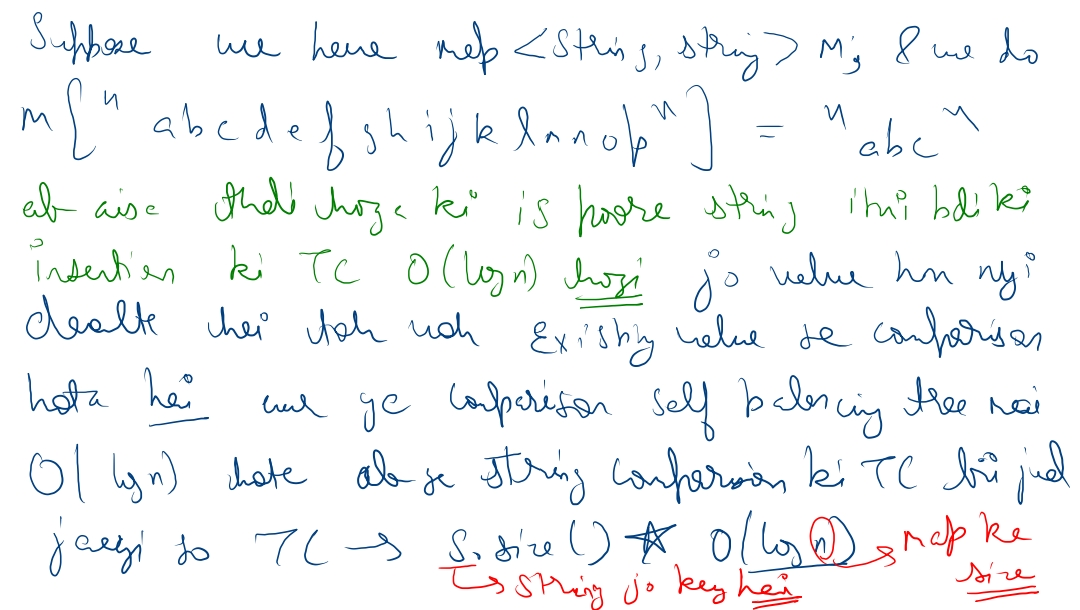 Suppose we have map <string, string> m; & we do
m["abcdefghijklmnop"] = "abc"
ab aisa thodi hoga ki is poore string itni bdi ki
insertion ki TC O(log n) hogi jo value hm nyi
daalte hai toh woh existing value se comparison
hota hai aur ye comparison self balancing tree mai
O(log n) hota ab ye string comparison ki TC bhi jud
jaegi so TC → S.size() * O(log n) → map ke size
↳ string jo key hai